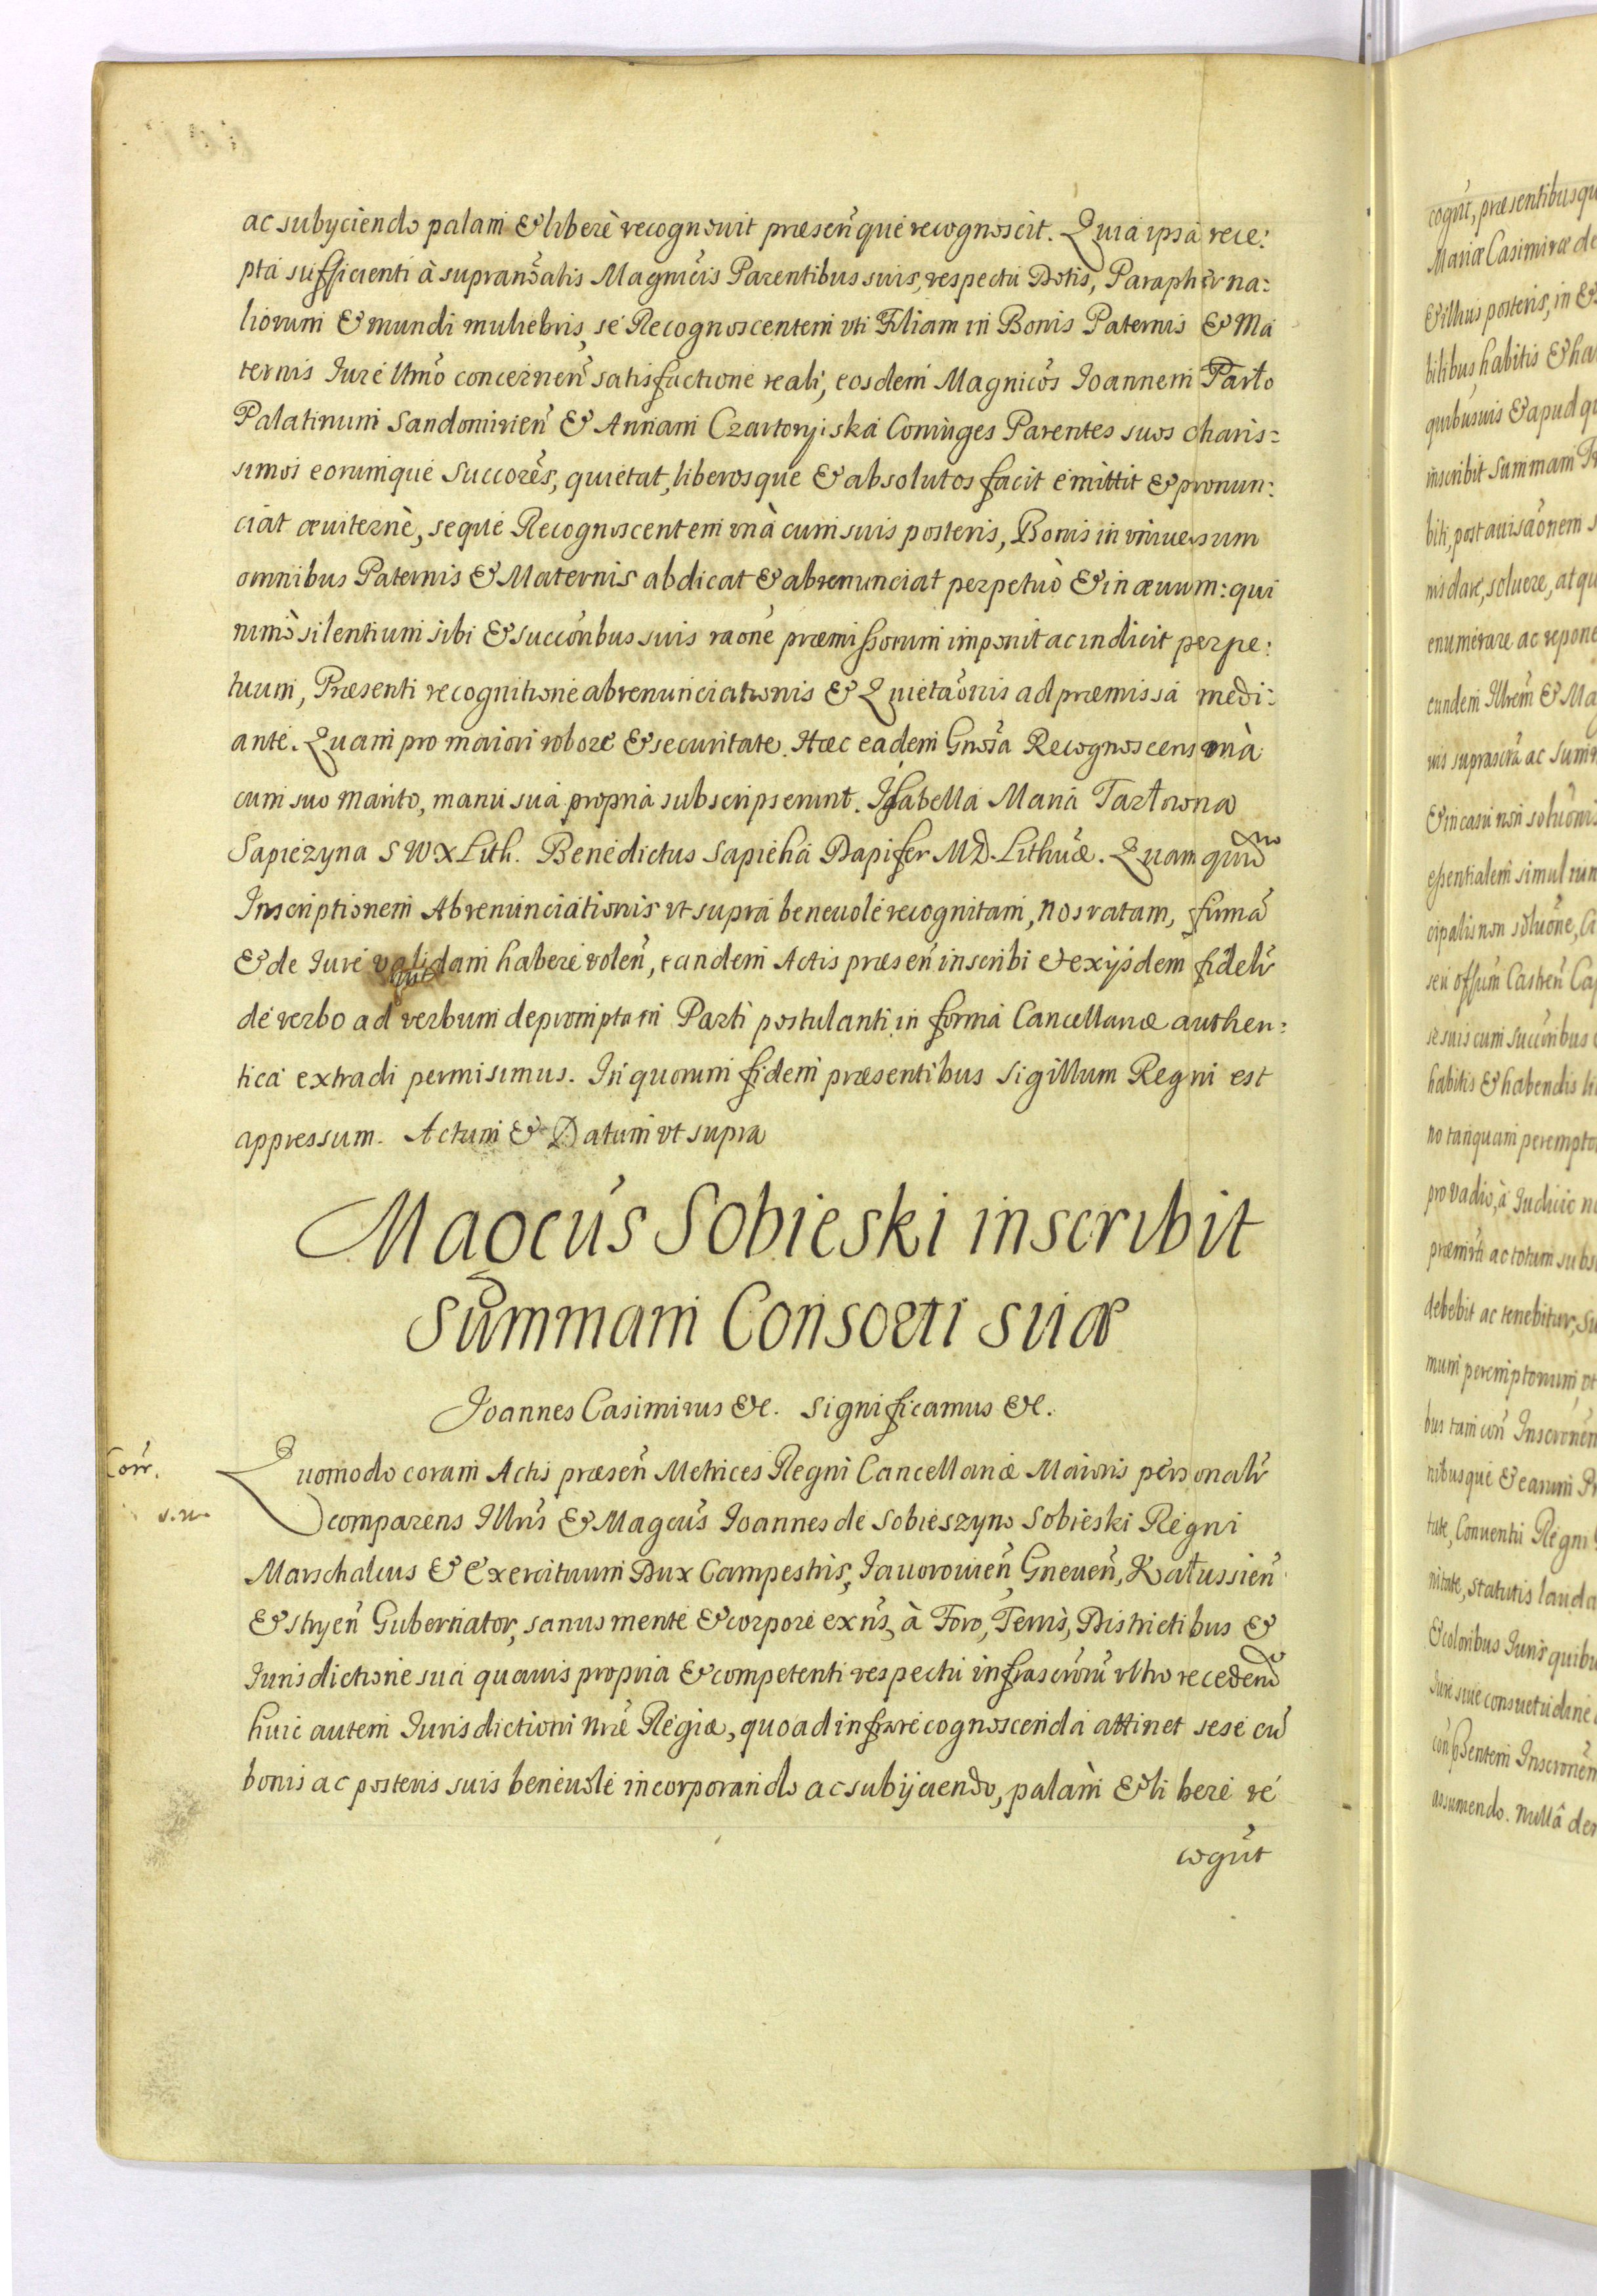 ac subyciendo palam & liberè recognouit præsen̄que recognoscit. Quia ipsa rece:
pta sufficienti à supranõatis Magnĩcis Parentibus suis, respectu Dotis, Parapherna:
liorum & mundi muliebris, se Recognoscentem vti Filiam in Bonis Paternis & Ma
ternis Jure Ltmõ concernen̄ satisfactione reali, eosdem Magnicõs Joannem Tarło
Palatinum Sandomirien̄ & Annam Czartoryiska Coniuges Parentes suos charis=
simos eorumque Succorēs, quietat, liberosque & absolutos facit emittit & pronun:
ciat æuiternè, seque Recognoscentem vnà cum suis posteris, Bonis in vniuersum
omnibus Paternis & Maternis abdicat & abrenunciat perpetuò & in æuum: qui
nimò silentium sibi & succõribus suis raõne præmissorum imponit ac indicit perpe:
tuum, Præsenti recognitione abrenunciationis & Quietaõnis ad præmissa medi:
ante. Quam pro maiori robore & securitate. Hæc eadem Gnõsa Recognoscens vnà
cum suo marito, manu sua propria subscripserunt. Isabella Maria Tarłowna
Sapiezyna S W X Lith. Benedictus Sapieha Dapifer M D. Lithuæ. Quam quid̄
Inscriptionem Abrenunciationis vt supra beneuole recognitam, nos ratam, firmā
& de Jure validam habere volen̄, eandem Actis præsen̄ inscribi & ex ijsdem fidelr̄
de verbo ad verbum depromptam Parti postulanti in forma Cancellariæ authen:
tica extradi permisimus. In quorum fidem præsentibus Sigillum Regni est
appressum. Actum & Datum vt supra
Magcūs Sobieski inscribit
Summam Consorti suæ
Joannes Casimirus &c. Significamus &c.
Corr.
Quomodo coram Actis præsen̄ Metrices Regni Cancellariæ Maioris personalr̄
comparens Illrīs & Magcūs Joannes de Sobieszyno Sobieski Regni
Marschalcus & Exercituum Dux Campestris, Jauorouien̄ Gneuen̄, Kałussien̄
& Stryen̄ Gubernator, sanus mente & corpore exn̄s, à Foro, Terris, Districtibus &
Jurisdictione sua quauis propria & competenti respectu infrascrōrū vltro recedend̄
huic autem Jurisdictioni nrǣ Regiæ, quoad infra recognoscenda attinet sese cū
bonis ac posteris suis beneuole incorporando ac subijciendo, palàm & libere re
cogūt
cogūt, præsentibusqu
Mariæ Casimiræ de
& illius posteris, in &
bilibus habitis & ha
quibusuis & apud qu
inscribit Summam
biti, post auisaõnem s
nis dare, soluere, atqu
enumerare ac repone
eundem Illrem̄ & Ma
Maternis
& in casu non solūonis
essentialem simul
cipalis non solūone,
seu offūm Castren̄ Ca
se suis cum succōribus
habitis & habendis
no tanquam perempto
pro vadio, à Judicio
ac totum subs
debebit ac tenebitur, su
mum peremptorium vt
bus tam con̄ Inscronēn
nibusque & earum
tute, Conuentu Regni
nitate, statutis lauda
& coloribus Juris quibu
Jure siue consuetudine
Inscronēm
assumendo. Nullâ